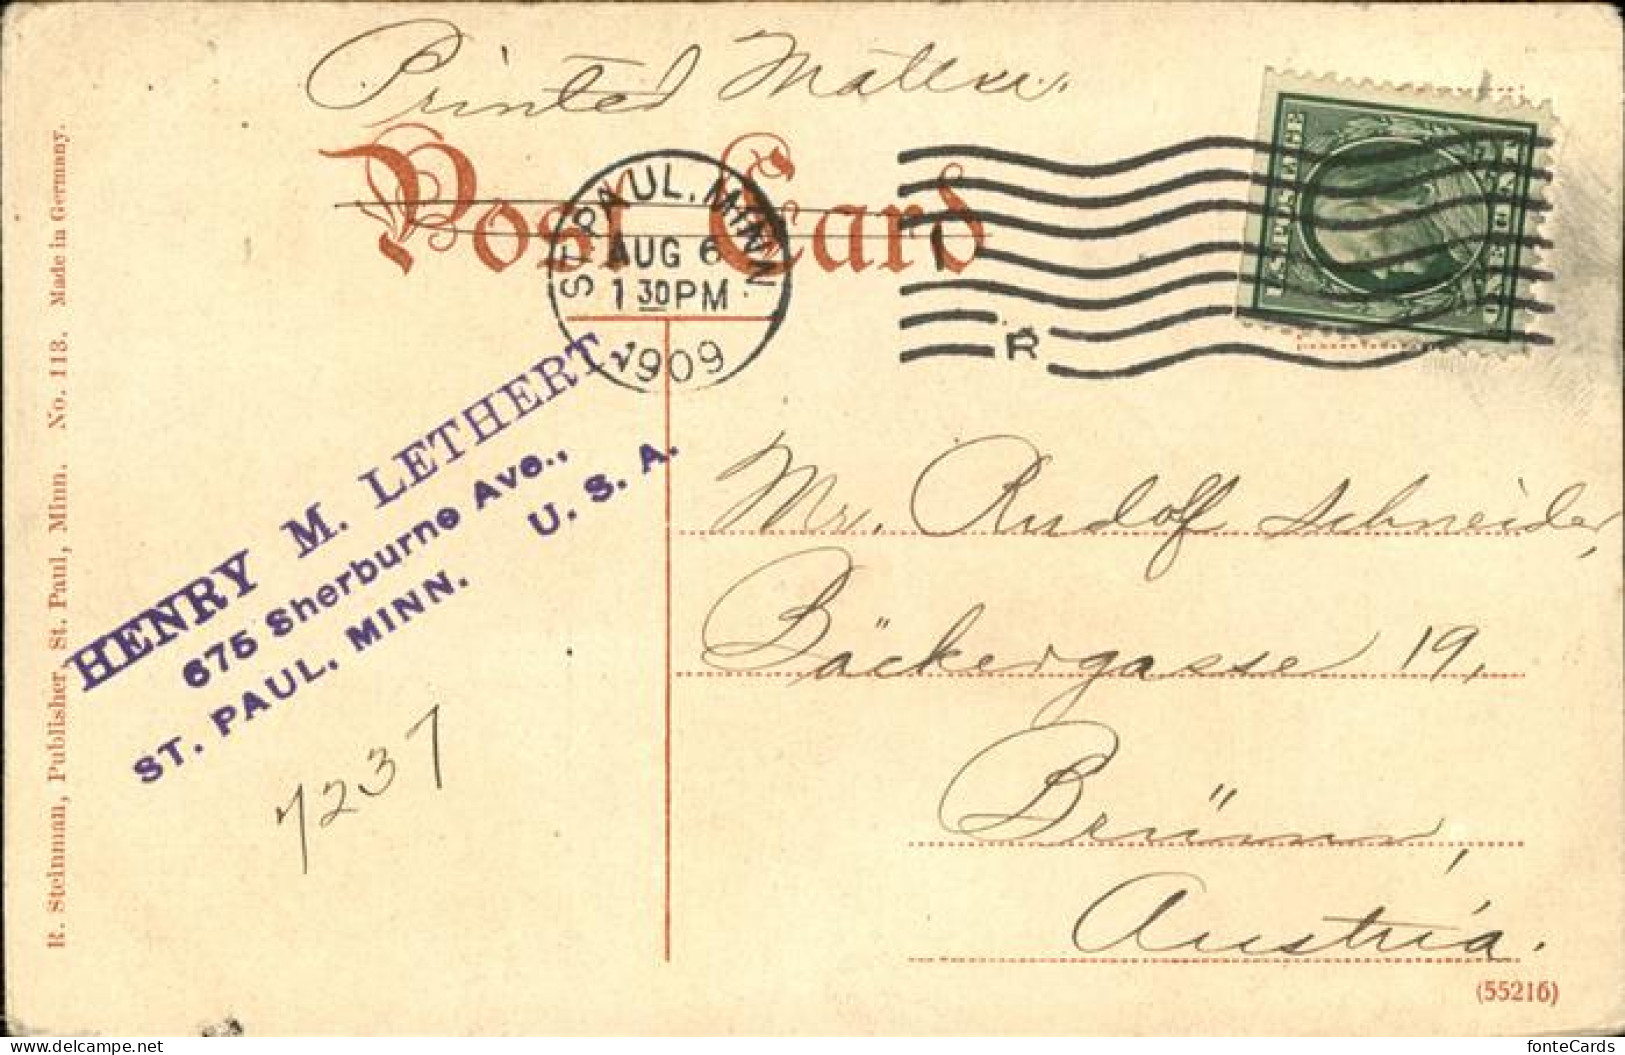 Printed Matter.
Post Card
ST. PAUL, MINN.
AUG 6
1 30 PM
1909
R
U.S. POSTAGE
HENRY M. LETHERT,
675 Sherburne Ave.,
ST. PAUL, MINN. U. S. A.
7237
Mr. Rudolf Schneider,
Bäckergasse 19,
Brünn,
Austria.
(55216)
R. Steinman, Publisher, St. Paul, Minn. No. 113. Made in Germany.
delcampe.net
fonteCards